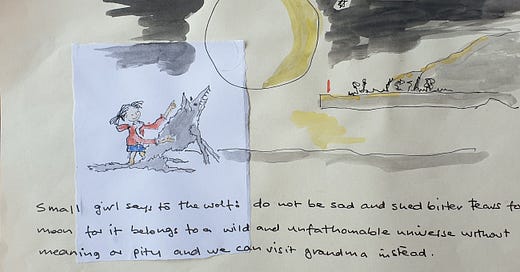 Small girl says to the wolf: do not be sad and shed bitter tears fo
moon for it belongs to a wild and unfathomable universe without
meaning or pity and we can visit grandma instead.